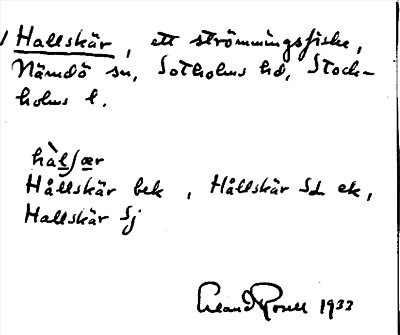 Hallskär, ett strömmingsfiske,
Nämdö sn, Sotholms hd, Stock-
holms l.
hàlʃær
Hållskär bek, Hållskär Sd ek,
Hallskär Sj
Erland Rosell 1933